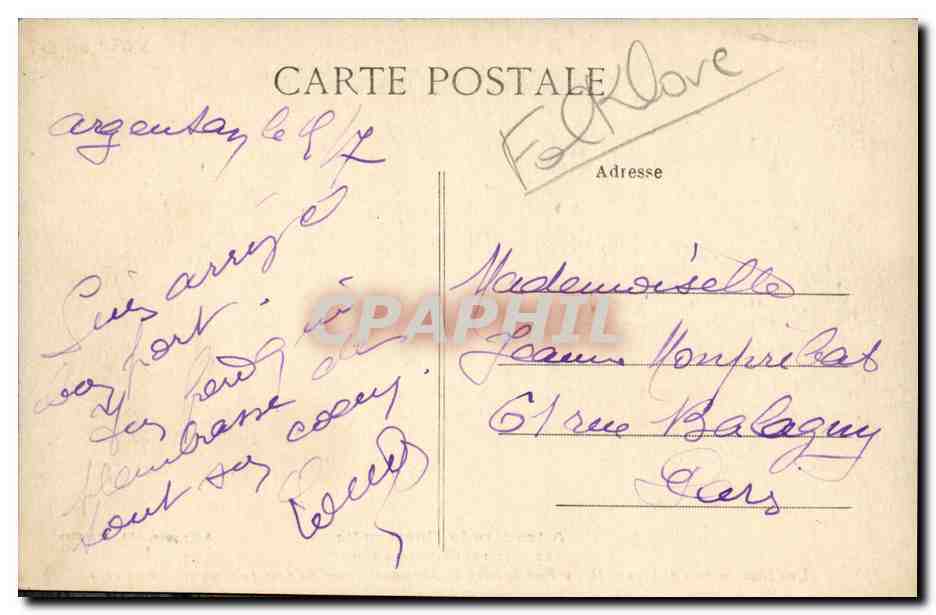 CARTE POSTALE
Folklore
Argentan, le 5/7
Adresse
Suis arrivé
bon port.
t'embrasse de
tout son coeur.
Mademoiselle
Jeanne Monpribat
61 rue Balagny
Paris
CPAPHIL